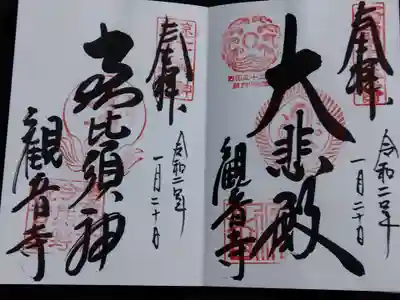 奉拝
大悲殿
観音寺
令和二年
一月二十日
奉拝
恵比須神
観音寺
令和二年
一月二十日